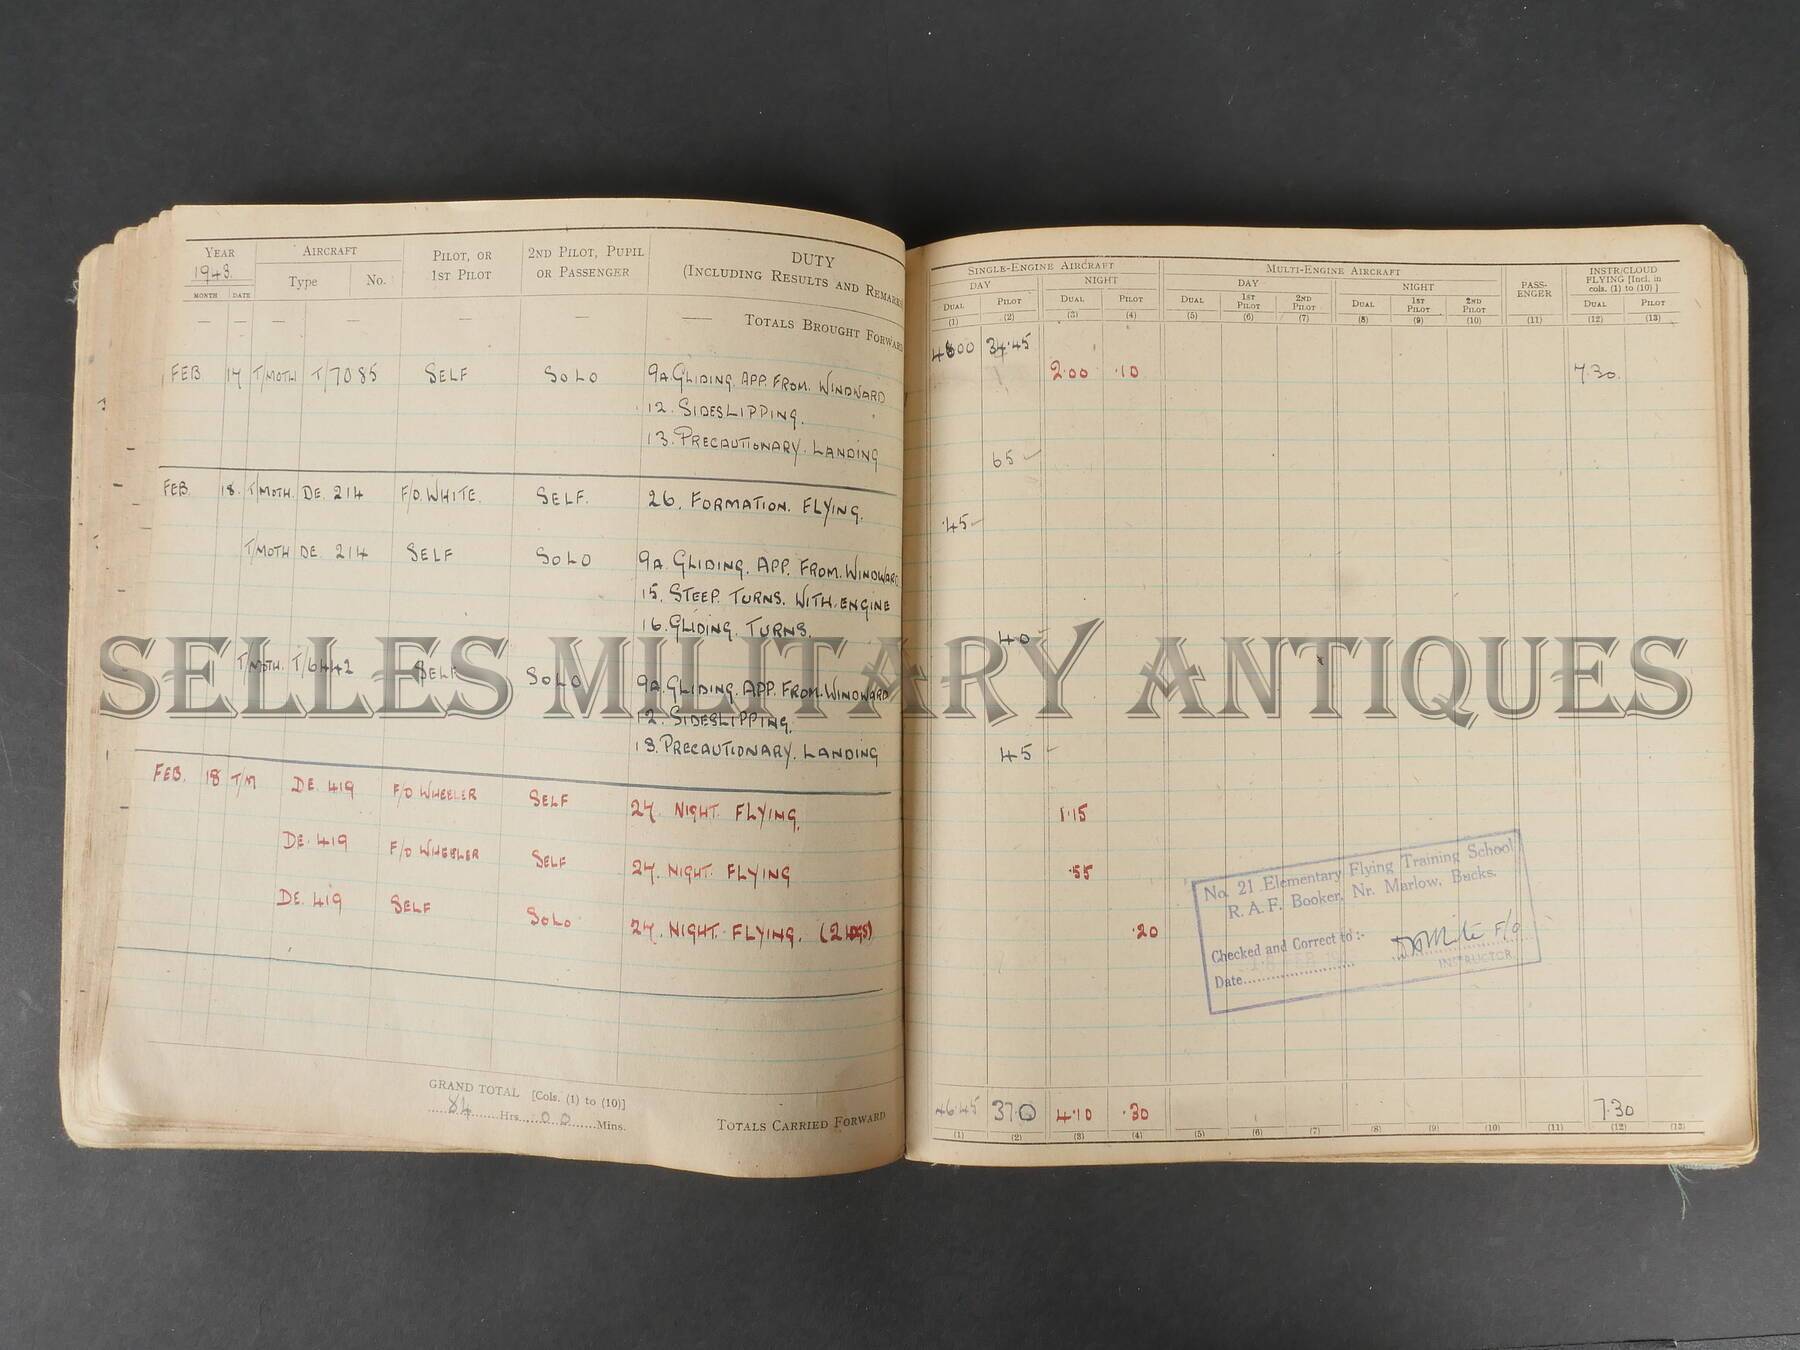 YEAR AIRCRAFT PILOT, OR 2ND PILOT, PUPIL DUTY
1943. Type No. 1ST PILOT OR PASSENGER (INCLUDING RESULTS AND REMARKS
MONTH DATE
— — — — — — TOTALS BROUGHT FORWARD
FEB 17 T/MOTH T/7085 SELF SOLO 9A. GLIDING. APP. FROM. WINDWARD
12. SIDESLIPPING.
13. PRECAUTIONARY. LANDING
FEB. 18. T/MOTH. DE. 214 F/O. WHITE. SELF. 26. FORMATION. FLYING.
T/MOTH DE 214 SELF SOLO 9A. GLIDING. APP. FROM. WINDWARD
15. STEEP. TURNS. WITH. ENGINE
16. GLIDING. TURNS.
T/MOTH. T/6442 SELF SOLO 9A. GLIDING. APP. FROM. WINDWARD
12. SIDESLIPPING.
13. PRECAUTIONARY. LANDING
FEB. 18 T/M DE. 419 F/O WHEELER SELF 27. NIGHT. FLYING.
DE. 419 F/O WHEELER SELF 27. NIGHT. FLYING
DE. 419 SELF SOLO 27. NIGHT. FLYING.
GRAND TOTAL [Cols. (1) to (10)]
84 Hrs. 00 Mins.
TOTALS CARRIED FORWARD
SINGLE-ENGINE AIRCRAFT MULTI-ENGINE AIRCRAFT PASS-ENGER INSTR/CLOUD
FLYING [Incl. in
cols. (1) to (10)]
DAY NIGHT DAY NIGHT
DUAL PILOT DUAL PILOT DUAL 1ST PILOT 2ND PILOT DUAL 1ST PILOT 2ND PILOT DUAL PILOT
(1) (2) (3) (4) (5) (6) (7) (8) (9) (10) (11) (12) (13)
34.45
2.00 .10 7.30.
65
.45
40
45
1.15
.55
.20
No. 21 Elementary Flying Training School
R. A. F. Booker, Nr. Marlow, Bucks.
Checked and Correct to :-
F/O
Date
INSTRUCTOR
46.45 37.0 4.10 .30 7.30
(1) (2) (3) (4) (5) (6) (7) (8) (9) (10) (11) (12) (13)
SELLES MILITARY ANTIQUES